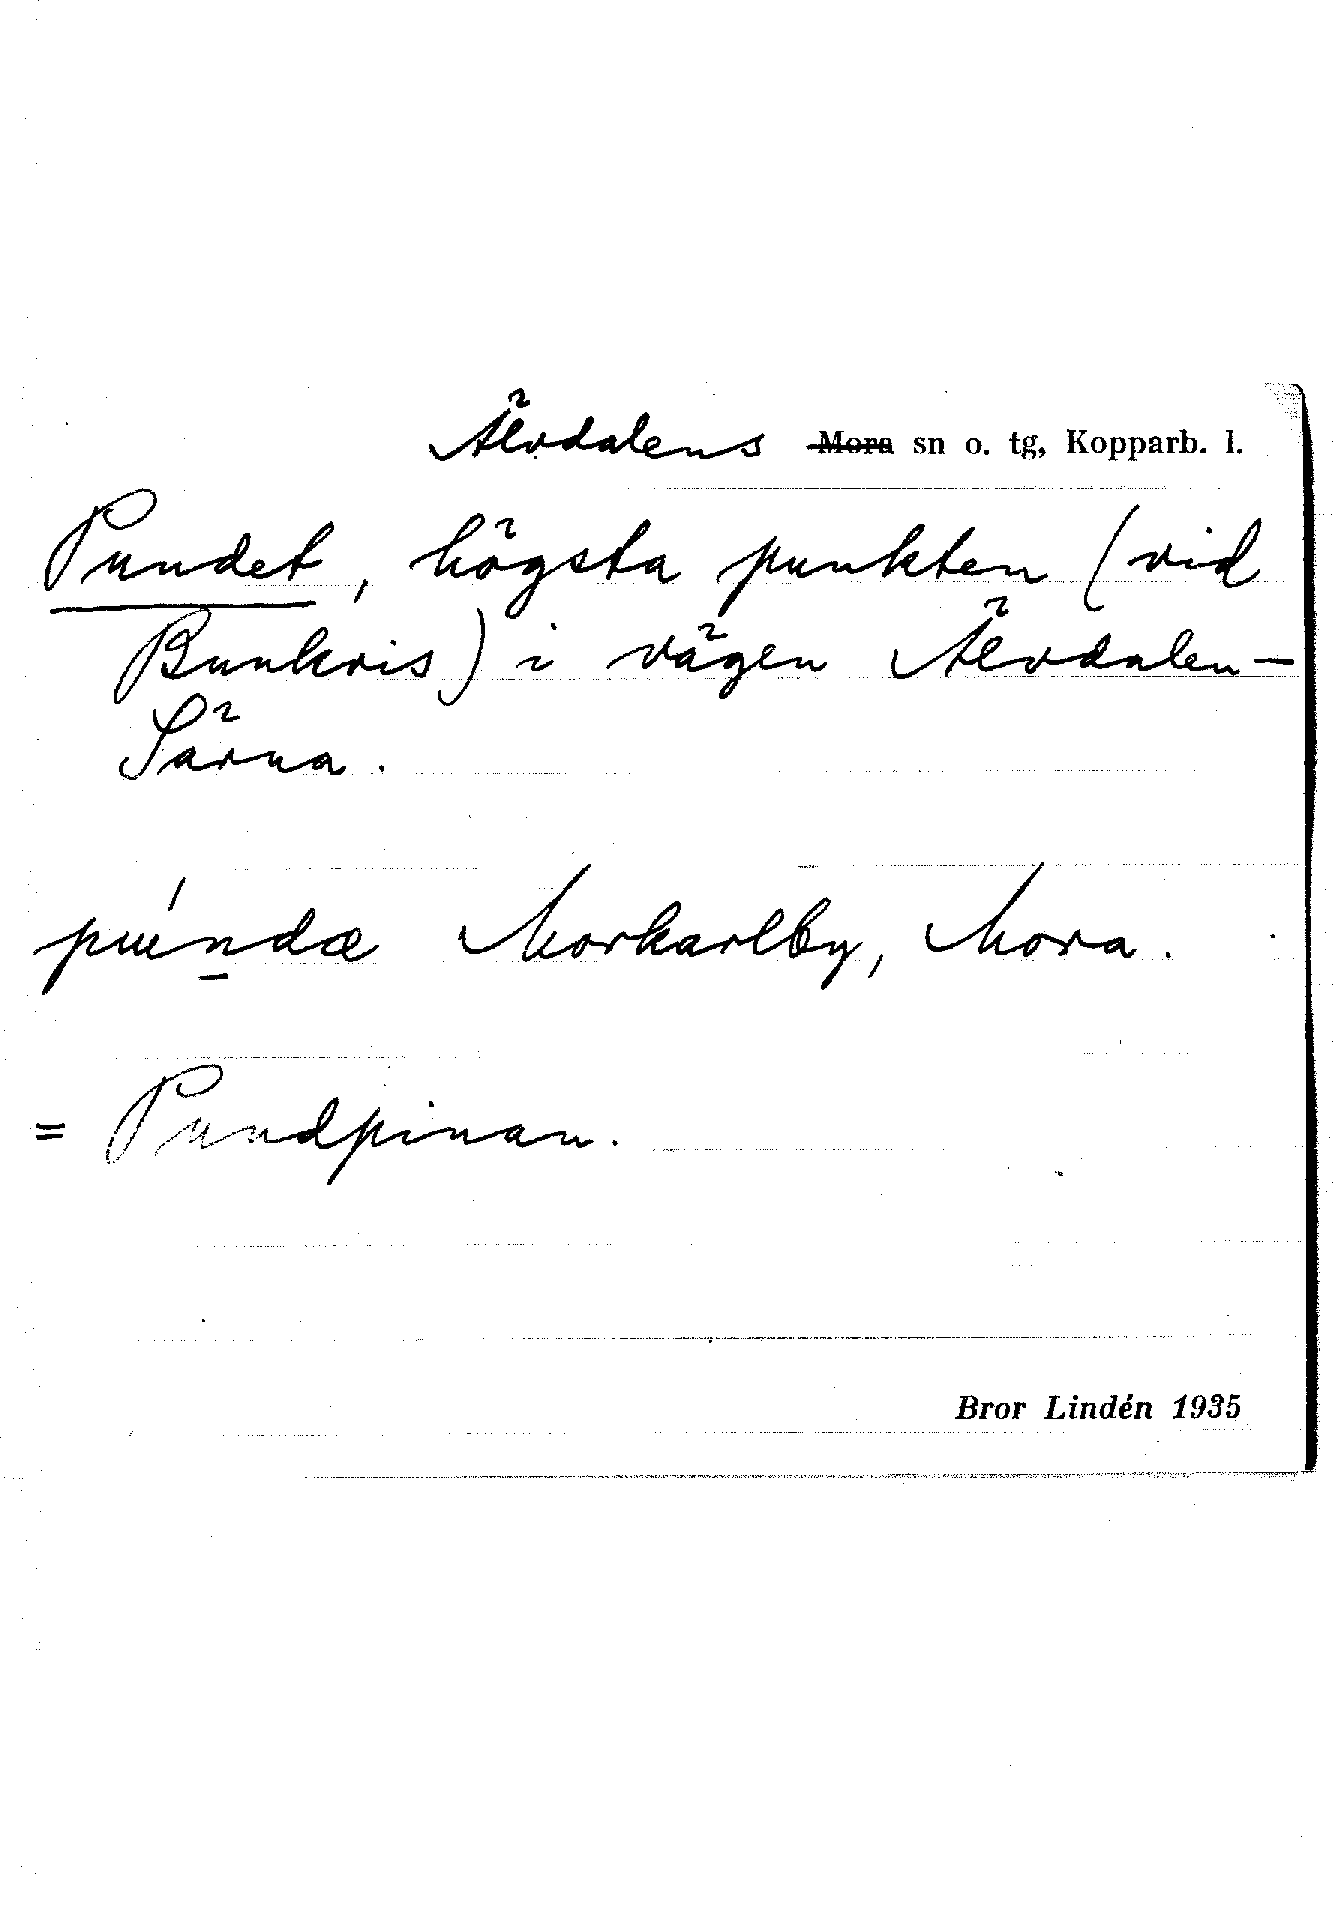 Älvdalens Mora sn o. tg, Kopparb. l.
Pundet, högsta punkten (vid
Bunkris) i vägen Älvdalen—
Särna.
púndæ Morkarlby, Mora.
= Pundpinan.
Bror Lindén 1935